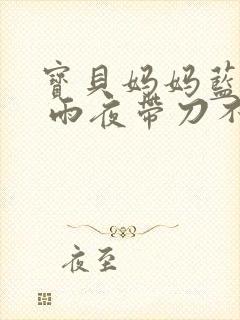 寶貝妈妈藍
雨夜帶刀不
夜至